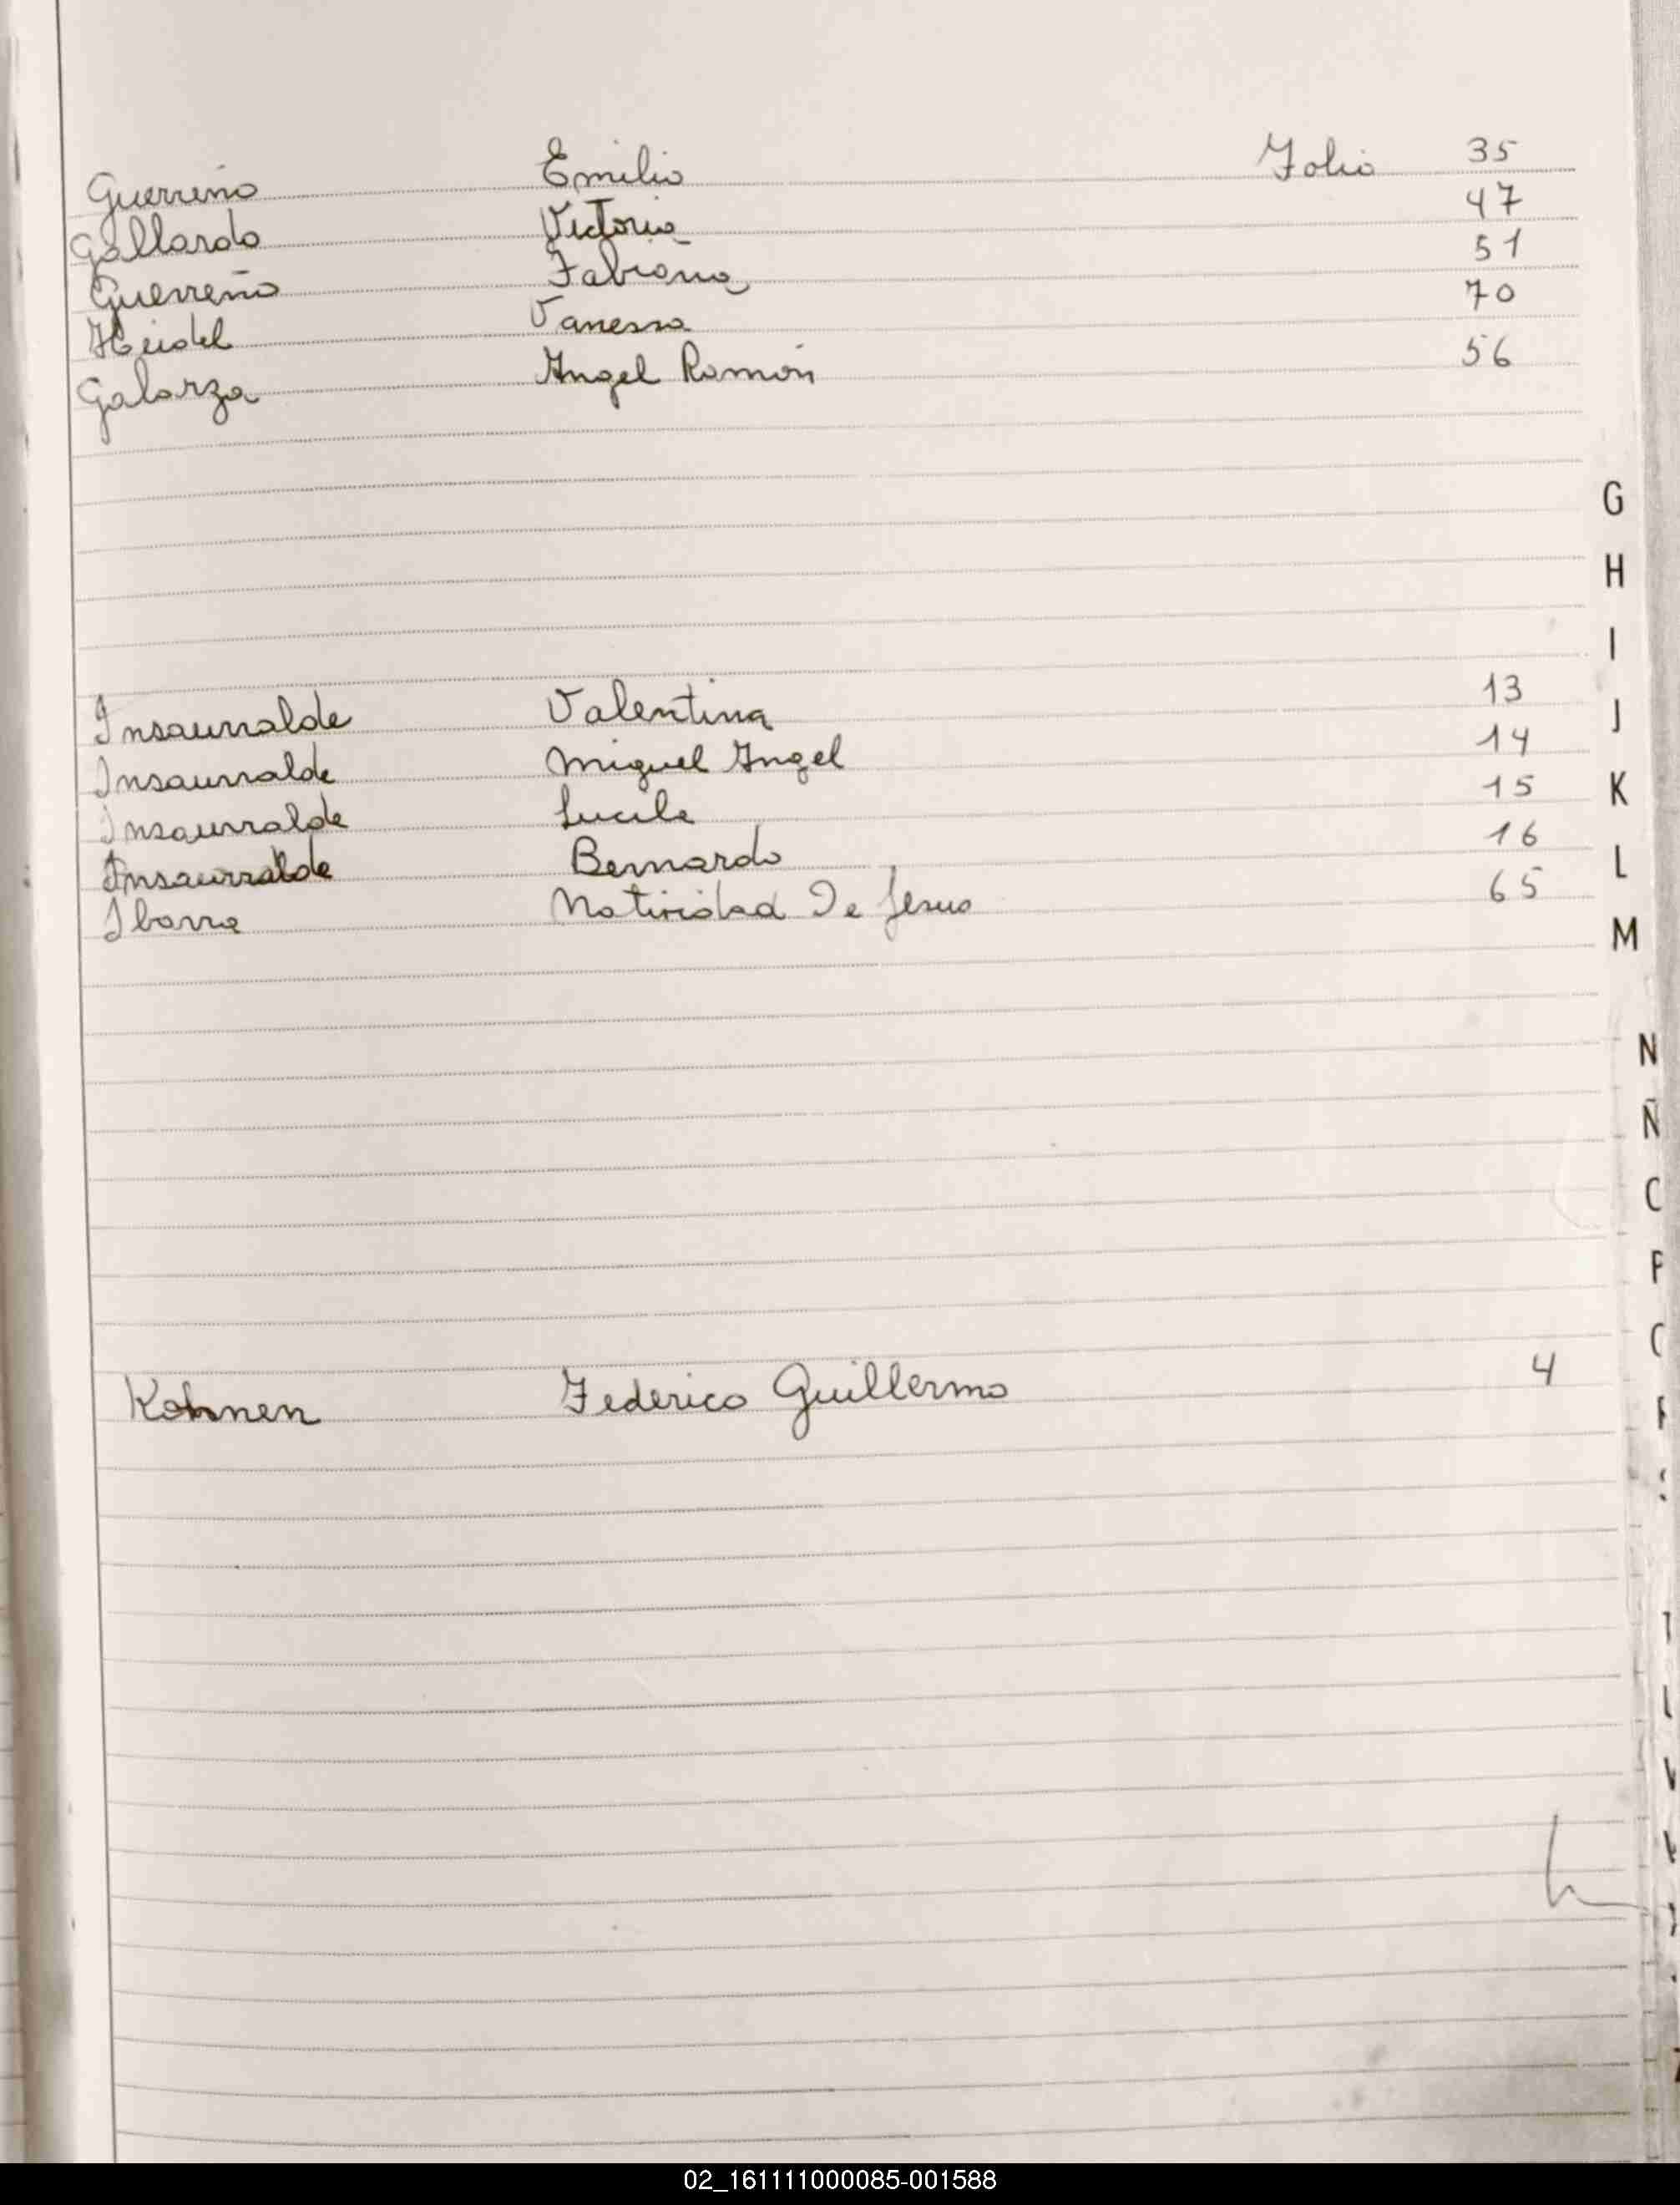 Guerreño Emilio Folio 35
Gallardo Victoria 47
Guerreño Fabiana 51
Heidel Vanessa 70
Galarza Angel Ramón 56
G
H
I
Insaurralde Valentina 13
J
Insaurralde Miguel Angel 14
K
Insaurralde Lucila 15
Insaurralde Bernardo 16
L
Ibarra Natividad De Jesus 65
M
N
Ñ
Kohnen Federico Guillermo 4
02_161111000085-001588